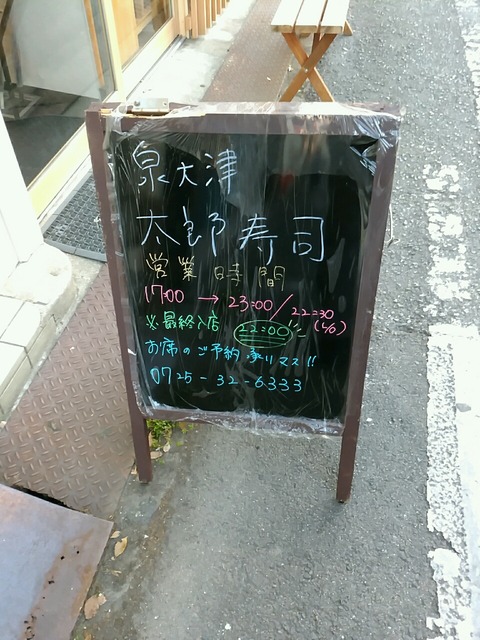 泉大津
太郎寿司
営業時間
17:00 → 23:00 / 22:30 (L/O)
※最終入店 22:00
お席のご予約承リマス!!
0725-32-6333